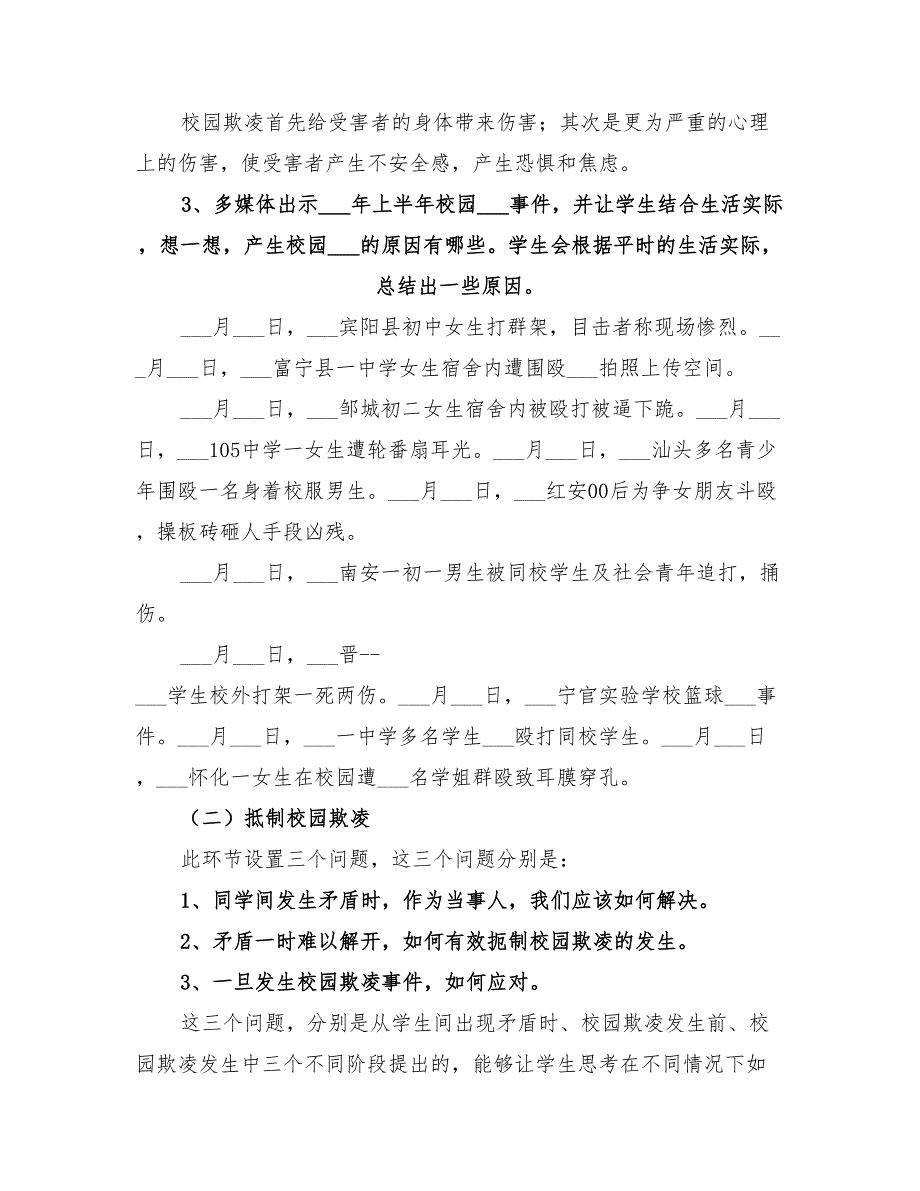 校园欺凌首先给受害者的身体带来伤害；其次是更为严重的心理
上的伤害，使受害者产生不安全感，产生恐惧和焦虑。
3、多媒体出示___年上半年校园___事件，并让学生结合生活实际
，想一想，产生校园___的原因有哪些。学生会根据平时的生活实际，
总结出一些原因。
___月___日，___宾阳县初中女生打群架，目击者称现场惨烈。__
_月___日，___富宁县一中学女生宿舍内遭围殴___拍照上传空间。
___月___日，___邹城初二女生宿舍内被殴打被逼下跪。___月___
日，___105中学一女生遭轮番扇耳光。___月___日，___汕头多名青少
年围殴一名身着校服男生。___月___日，___红安00后为争女朋友斗殴
，操板砖砸人手段凶残。
___月___日，___南安一初一男生被同校学生及社会青年追打，捅
伤。
___月___日，___晋--
___学生校外打架一死两伤。___月___日，___宁官实验学校篮球___事
件。___月___日，___一中学多名学生___殴打同校学生。___月___日
，___怀化一女生在校园遭___名学姐群殴致耳膜穿孔。
（二）抵制校园欺凌
此环节设置三个问题，这三个问题分别是：
1、同学间发生矛盾时，作为当事人，我们应该如何解决。
2、矛盾一时难以解开，如何有效扼制校园欺凌的发生。
3、一旦发生校园欺凌事件，如何应对。
这三个问题，分别是从学生间出现矛盾时、校园欺凌发生前、校
园欺凌发生中三个不同阶段提出的，能够让学生思考在不同情况下如